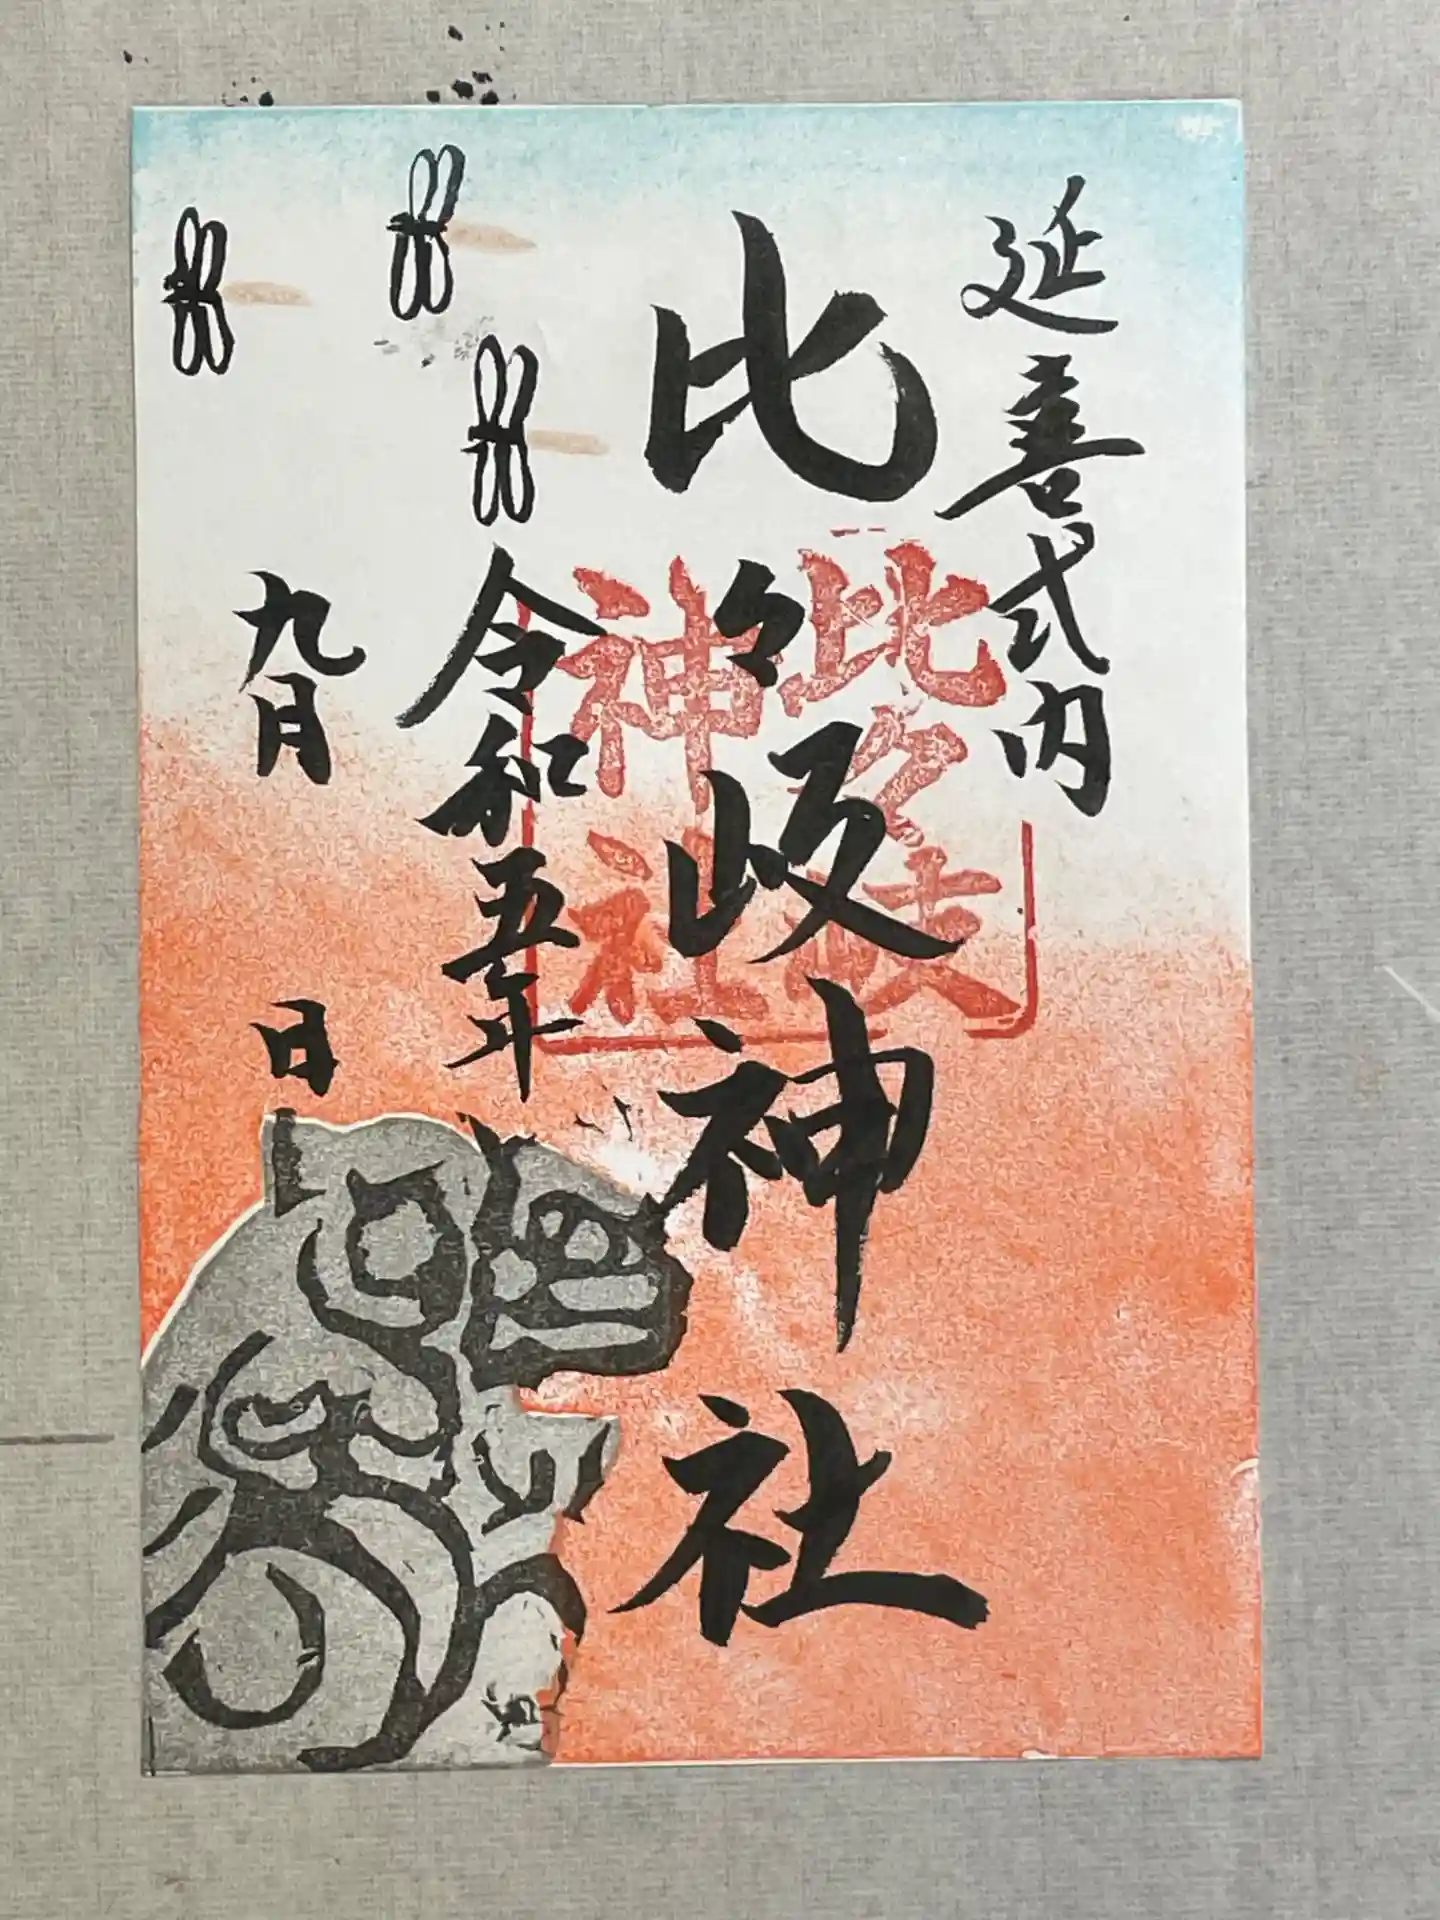 延喜式内
比々岐神社
比々岐
神社
令和五年
九月 日